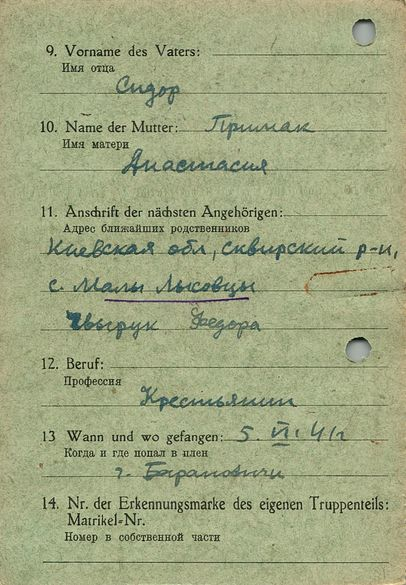 9. Vorname des Vaters:
Имя отца
Сидор
10. Name der Mutter: Примак
Имя матери
Анастасия
11. Anschrift der nächsten Angehörigen:
Адрес ближайших родственников
Киевская обл, сквирский р-н,
с. Малы Лыковцы
Федора
12. Beruf:
Профессия
Крестьянин
13 Wann und wo gefangen: 5. VI. 41г
Когда и где попал в плен
г. Барановичи
14. Nr. der Erkennungsmarke des eigenen Truppenteils:
Matrikel-Nr.
Номер в собственной части